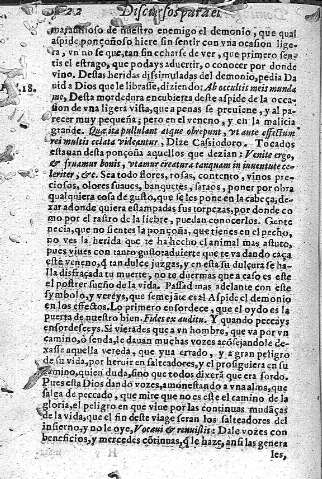 22 Discursos para el
marañoso de nuestro enemigo el demonio, que qual
aspide ponçoñoso hiere sin sentir con vna ocasion lige-
ra, vn no se que, tan sin echarse de ver, que primero sen-
tis el estrago, que podays aduertir, o conocer por donde
vino. Destas heridas dissimuladas del demonio, pedia Da
18. uid a Dios que le librasse, diziendo: Ab occultis meis munda
me, Desta mordedura encubierta deste aspide de la occa-
sion de vna ligera vista, que apenas se preuiene, y al pa-
recer muy pequeña; pero en el veneno, y en la malicia
grande. Quæ ita pullulant atque obrepunt, vt ante effectum
res multis celata videantur, Dize Cassiodoro. Tocados
estauan desta ponçoña aquellos que dezian: Venite ergo,
& fruamur bonis, vtamur creatura tanquam in iuuentute ce-
leriter, &c. Sea todo flores, rosas, contento, vinos pre-
ciosos, olores suaues, banquetes, saraos, poner por obra
qualquiera cosa de gusto, que se les pone en la cabeça, de-
xar adonde quiera estampadas sus torpezas, por donde co
mo por el rastro de la liebre, puedan conocerlos. Gente
necia, que no sientes la ponçoña, que tienes en el pecho,
no ves la herida que te ha hecho el animal mas astuto,
pues viues con tanto gusto: aduierte que te va dando caça
este veneno, q̃ tan dulce juzgas, y en essa su dulçura se ha-
lla disfraçada tu muerte, no te duermas que a caso es este
el postrer sueño de la vida. Passad mas adelante con este
symbolo, y vereys, que semejãte es al Aspide el demonio
en los effectos. Lo primero ensordece, que el oydo es la
puerta de nuestro bien. Fides ex auditu. Y quando peccays
ensordeceys. Si vierades que a vn hombre, que va por vn
camino, o senda, le dauan muchas vozes acõsejandole de-
xasse aquella vereda, que yua errado, y a gran peligro
de su vida, por heruir en salteadores, y el prosiguiera en su
camino, quien duda, sino que todos dixerã que era sordo.
Pues esta Dios dando vozes, amonestando a vna alma, que
salga de peccado, que mire que no es este el camino de la
gloria, el peligro en que viue por las continuas mudãças
de la vida, que el fin deste viage seran los salteadores del
infierno, y no le oye, Vocaui & renuistis: Dale vozes con
beneficios, y mercedes cõtinuas, q̃ le haze, ansi las genera
les,